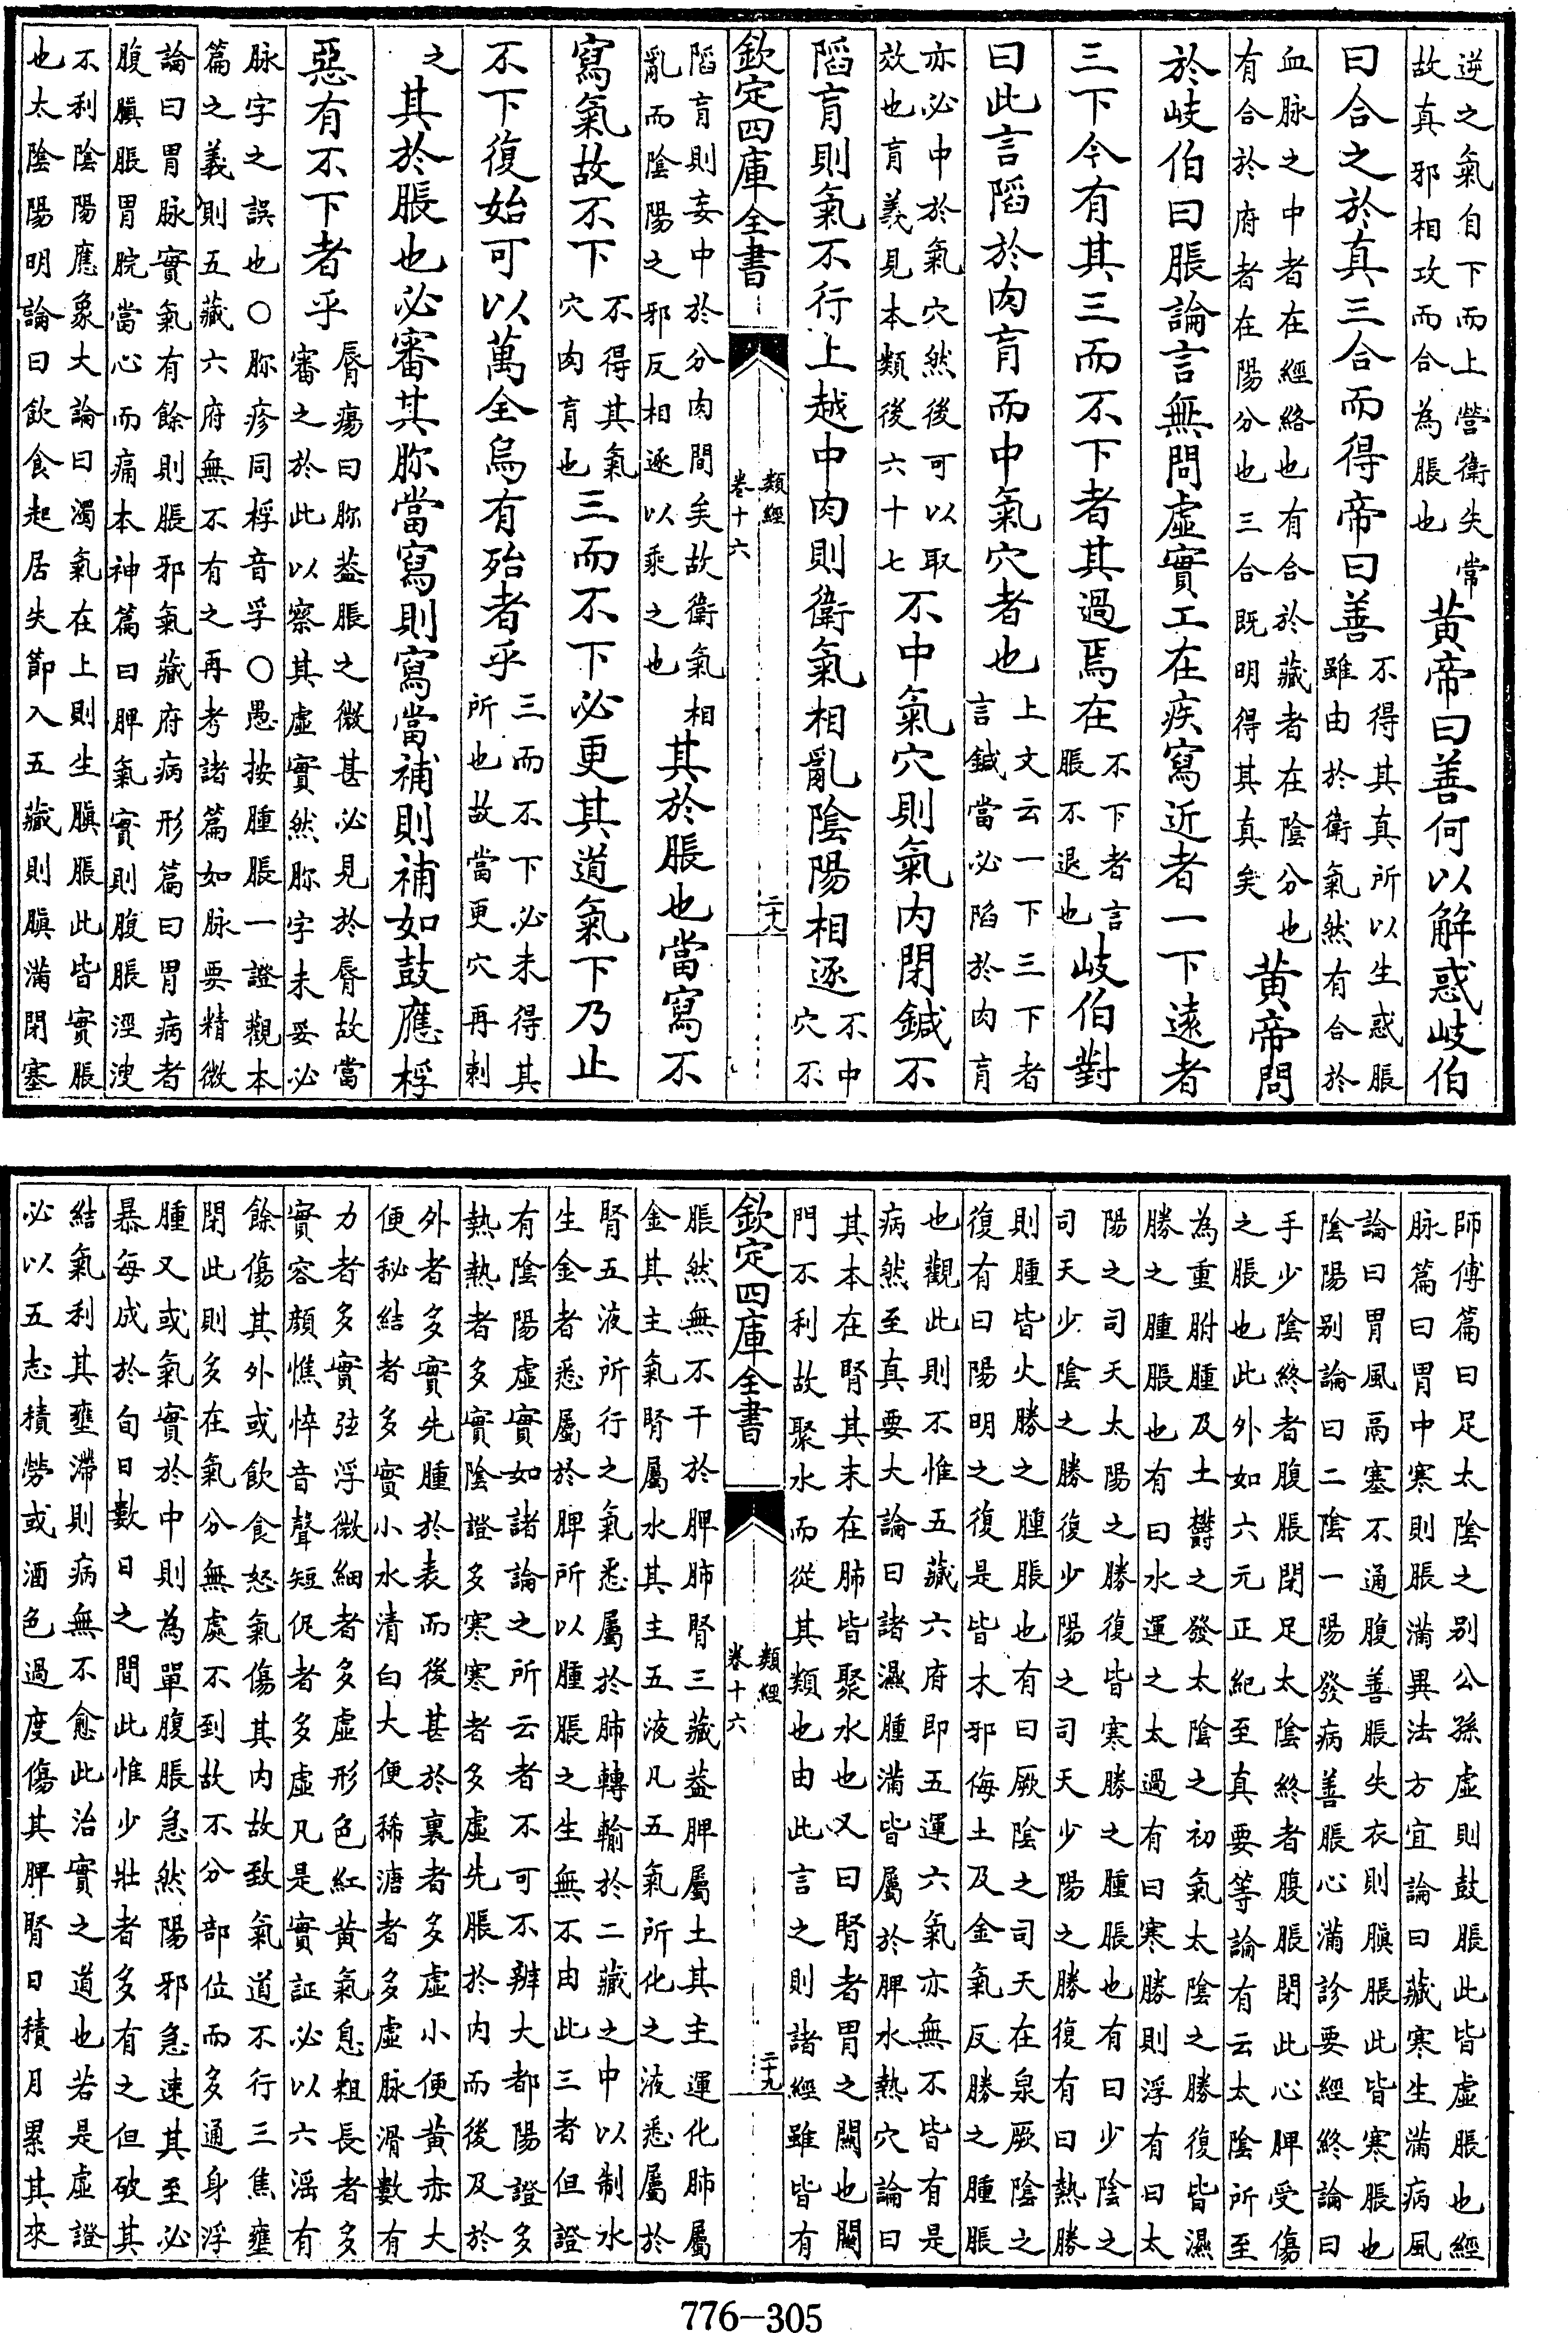 逆之氣自下而上營衛失常
故真邪相攻而合為脹也
黃帝曰善何以解惑岐伯
曰合之於真三合而得帝曰善
不得其真所以生惑脹
雖由於衛氣然有合於
血脉之中者在經絡也有合於藏者在陰分也
有合於府者在陽分也三合既明得其真矣
黃帝問
於岐伯曰脹論言無問虛實工在疾寫近者一下遠者
三下今有其三而不下者其過焉在
不下者言
脹不退也
岐伯對
曰此言䧟於肉肓而中氣穴者也
上文云一下三下者
言鍼當必䧟於肉肓
亦必中於氣穴然後可以取
效也肓義見本類後六十七
不中氣穴則氣內閉鍼不
䧟肓則氣不行上越中肉則衛氣相亂陰陽相逐
不中
穴不
欽定四庫全書
類經
卷十六
二十八
䧟肓則妄中於分肉間矣故衛氣相
亂而陰陽之邪反相逐以乘之也
其於脹也當寫不
寫氣故不下
不得其氣
穴肉肓也
三而不下必更其道氣下乃止
不下復始可以萬全烏有殆者乎
三而不下必未得其
所也故當更穴再刺
之
其於脹也必審其胗當寫則寫當補則補如鼓應桴
惡有不下者乎
脣瘍曰胗葢脹之微甚必見於脣故當
審之於此以察其虛實然胗字未妥必
脉字之誤也○胗疹同桴音孚○愚按腫脹一證觀本
篇之義則五藏六府無不有之再考諸篇如脉要精微
論曰胃脉實氣有餘則脹邪氣藏府病形篇曰胃病者
腹䐜脹胃脘當心而痛本神篇曰脾氣實則腹脹涇溲
不利陰陽應象大論曰濁氣在上則生䐜脹此皆實脹
也太陰陽明論曰飲食起居失節入五藏則䐜滿閉塞
師傳篇曰足太陰之别公孫虛則鼓脹此皆虛脹也經
脉篇曰胃中寒則脹滿異法方宜論曰藏寒生滿病風
論曰胃風鬲塞不通腹善脹失衣則䐜脹此皆寒脹也
陰陽别論曰二陰一陽發病善脹心滿診要經終論曰
手少陰終者腹脹閉足太陰終者腹脹閉此心脾受傷
之脹也此外如六元正紀至真要等論有云太陰所至
為重胕腫及土鬱之發太陰之初氣太陰之勝復皆濕
勝之腫脹也有曰水運之太過有曰寒勝則浮有曰太
陽之司天太陽之勝復皆寒勝之腫脹也有曰少陰之
司天少陰之勝復少陽之司天少陽之勝復有曰熱勝
則腫皆火勝之腫脹也有曰厥陰之司天在泉厥陰之
復有曰陽明之復是皆木邪侮土及金氣反勝之腫脹
也觀此則不惟五藏六府即五運六氣亦無不皆有是
病然至真要大論曰諸濕腫滿皆屬於脾水熱穴論曰
其本在腎其末在肺皆聚水也又曰腎者胃之關也關
門不利故聚水而從其類也由此言之則諸經雖皆有
欽定四庫全書
類經
卷十六
二十九
脹然無不干於脾肺腎三藏葢脾屬土其主運化肺屬
金其主氣腎屬水其主五液凡五氣所化之液悉屬於
腎五液所行之氣悉屬於肺轉輸於二藏之中以制水
生金者悉屬於脾所以腫脹之生無不由此三者但證
有陰陽虛實如諸論之所云者不可不辨大都陽證多
熱熱者多實陰證多寒寒者多虛先脹於內而後及於
外者多實先腫於表而後甚於裏者多虛小便黃赤大
便秘結者多實小水清白大便稀溏者多虛脉滑數有
力者多實弦浮微細者多虛形色紅黃氣息粗長者多
實容顏憔悴音聲短促者多虛凡是實証必以六淫有
餘傷其外或飲食怒氣傷其內故致氣道不行三焦壅
閉此則多在氣分無處不到故不分部位而多通身浮
腫又或氣實於中則為單腹脹急然陽邪急速其至必
暴每成於旬日數日之間此惟少壯者多有之但破其
結氣利其壅滯則病無不愈此治實之道也若是虛證
必以五志積勞或酒色過度傷其脾腎日積月累其來
776-305